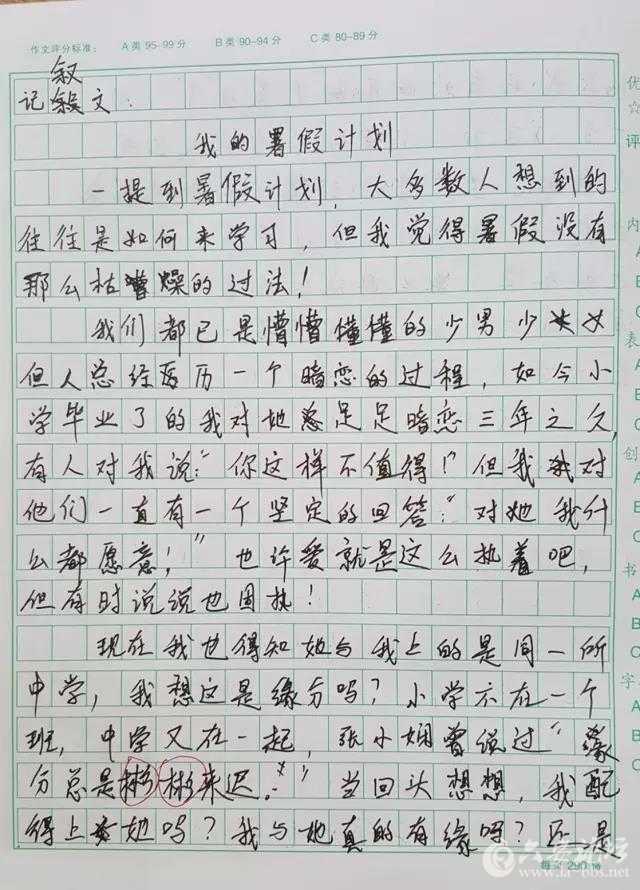 作文评分标准: A类95-99分 B类90-94分 C类80-89分
叙
记叙文:
我的暑假计划
一提到暑假计划,大多数人想到的
往往是如何来学习,但我觉得暑假没有
那么枯燥的过法!
我们都已是懵懵懂懂的少男少女
但人总经历一个暗恋的过程,如今小
学毕业了的我对她足足暗恋三年之久,
有人对我说:“你这样不值得!”但我对
他们一直有一个坚定的回答:“对她我什
么都愿意!”也许爱就是这么执着吧,
但有时说说也固执!
现在我也得知她与我上的是同一所
中学,我想这是缘分吗?小学不在一个
班,中学又在一起,张小娴曾说过“缘
分总是彬彬来迟。”当回头想想,我配
得上她吗?我与她真的有缘吗?还是
优
☆
评
内
A
B
C
表
A
B
C
创
A
B
C
书
A
B
C
字
A
B
C
六安论坛
www.la-bbs.net